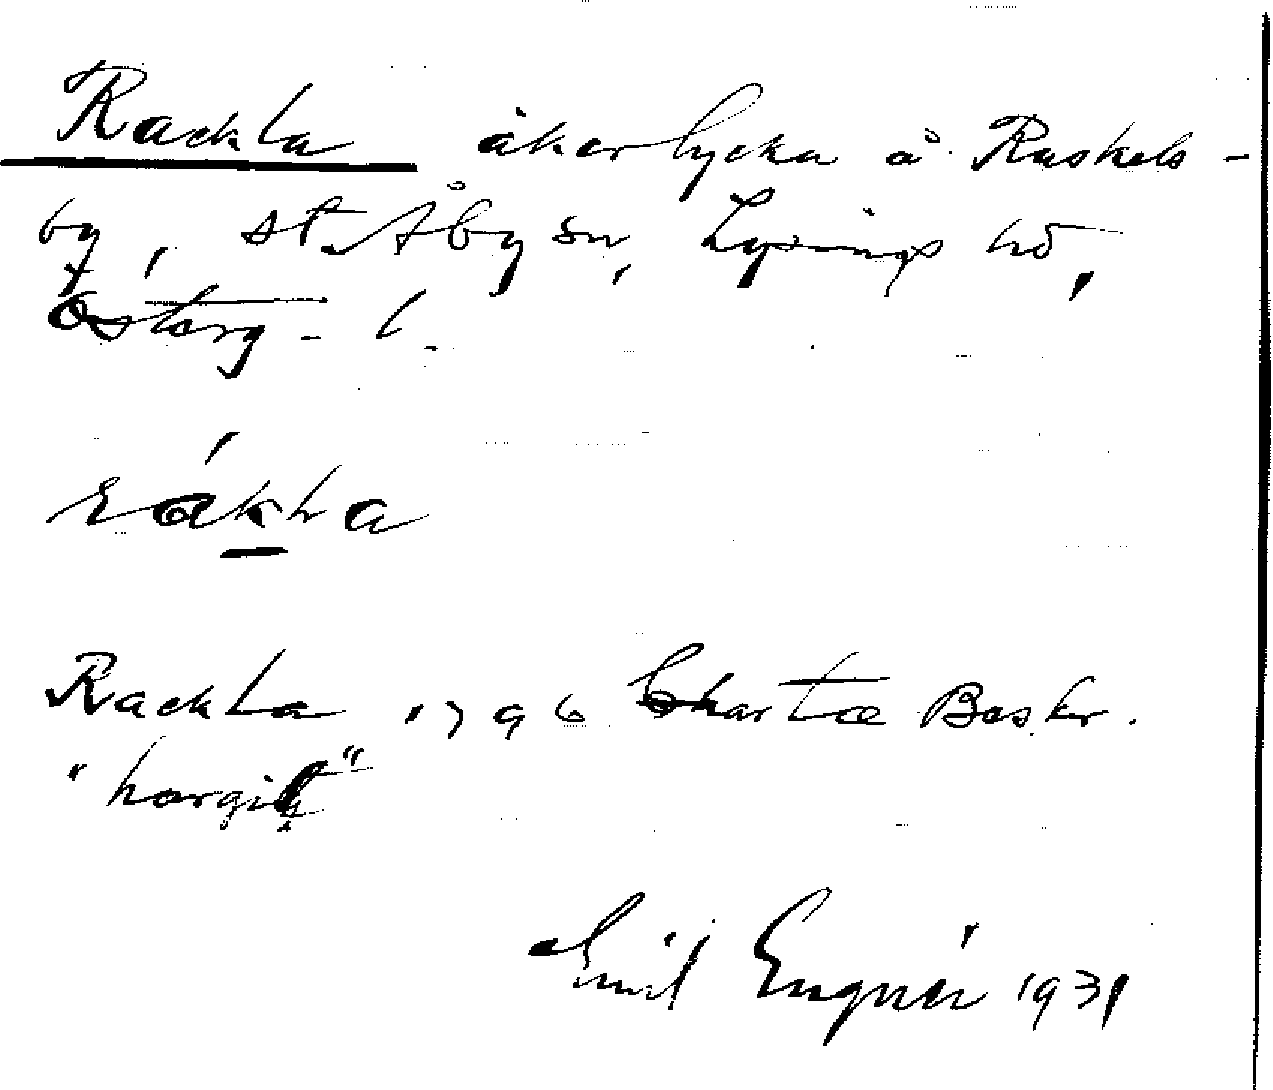 Rackla åkerlycka å Ruskels-
by, St. Åby sn, Lysings hd,
Österg. l.
rákla
Rackla 1796 Charta Beskr.
"hargilt"
Emil Engnér 1931